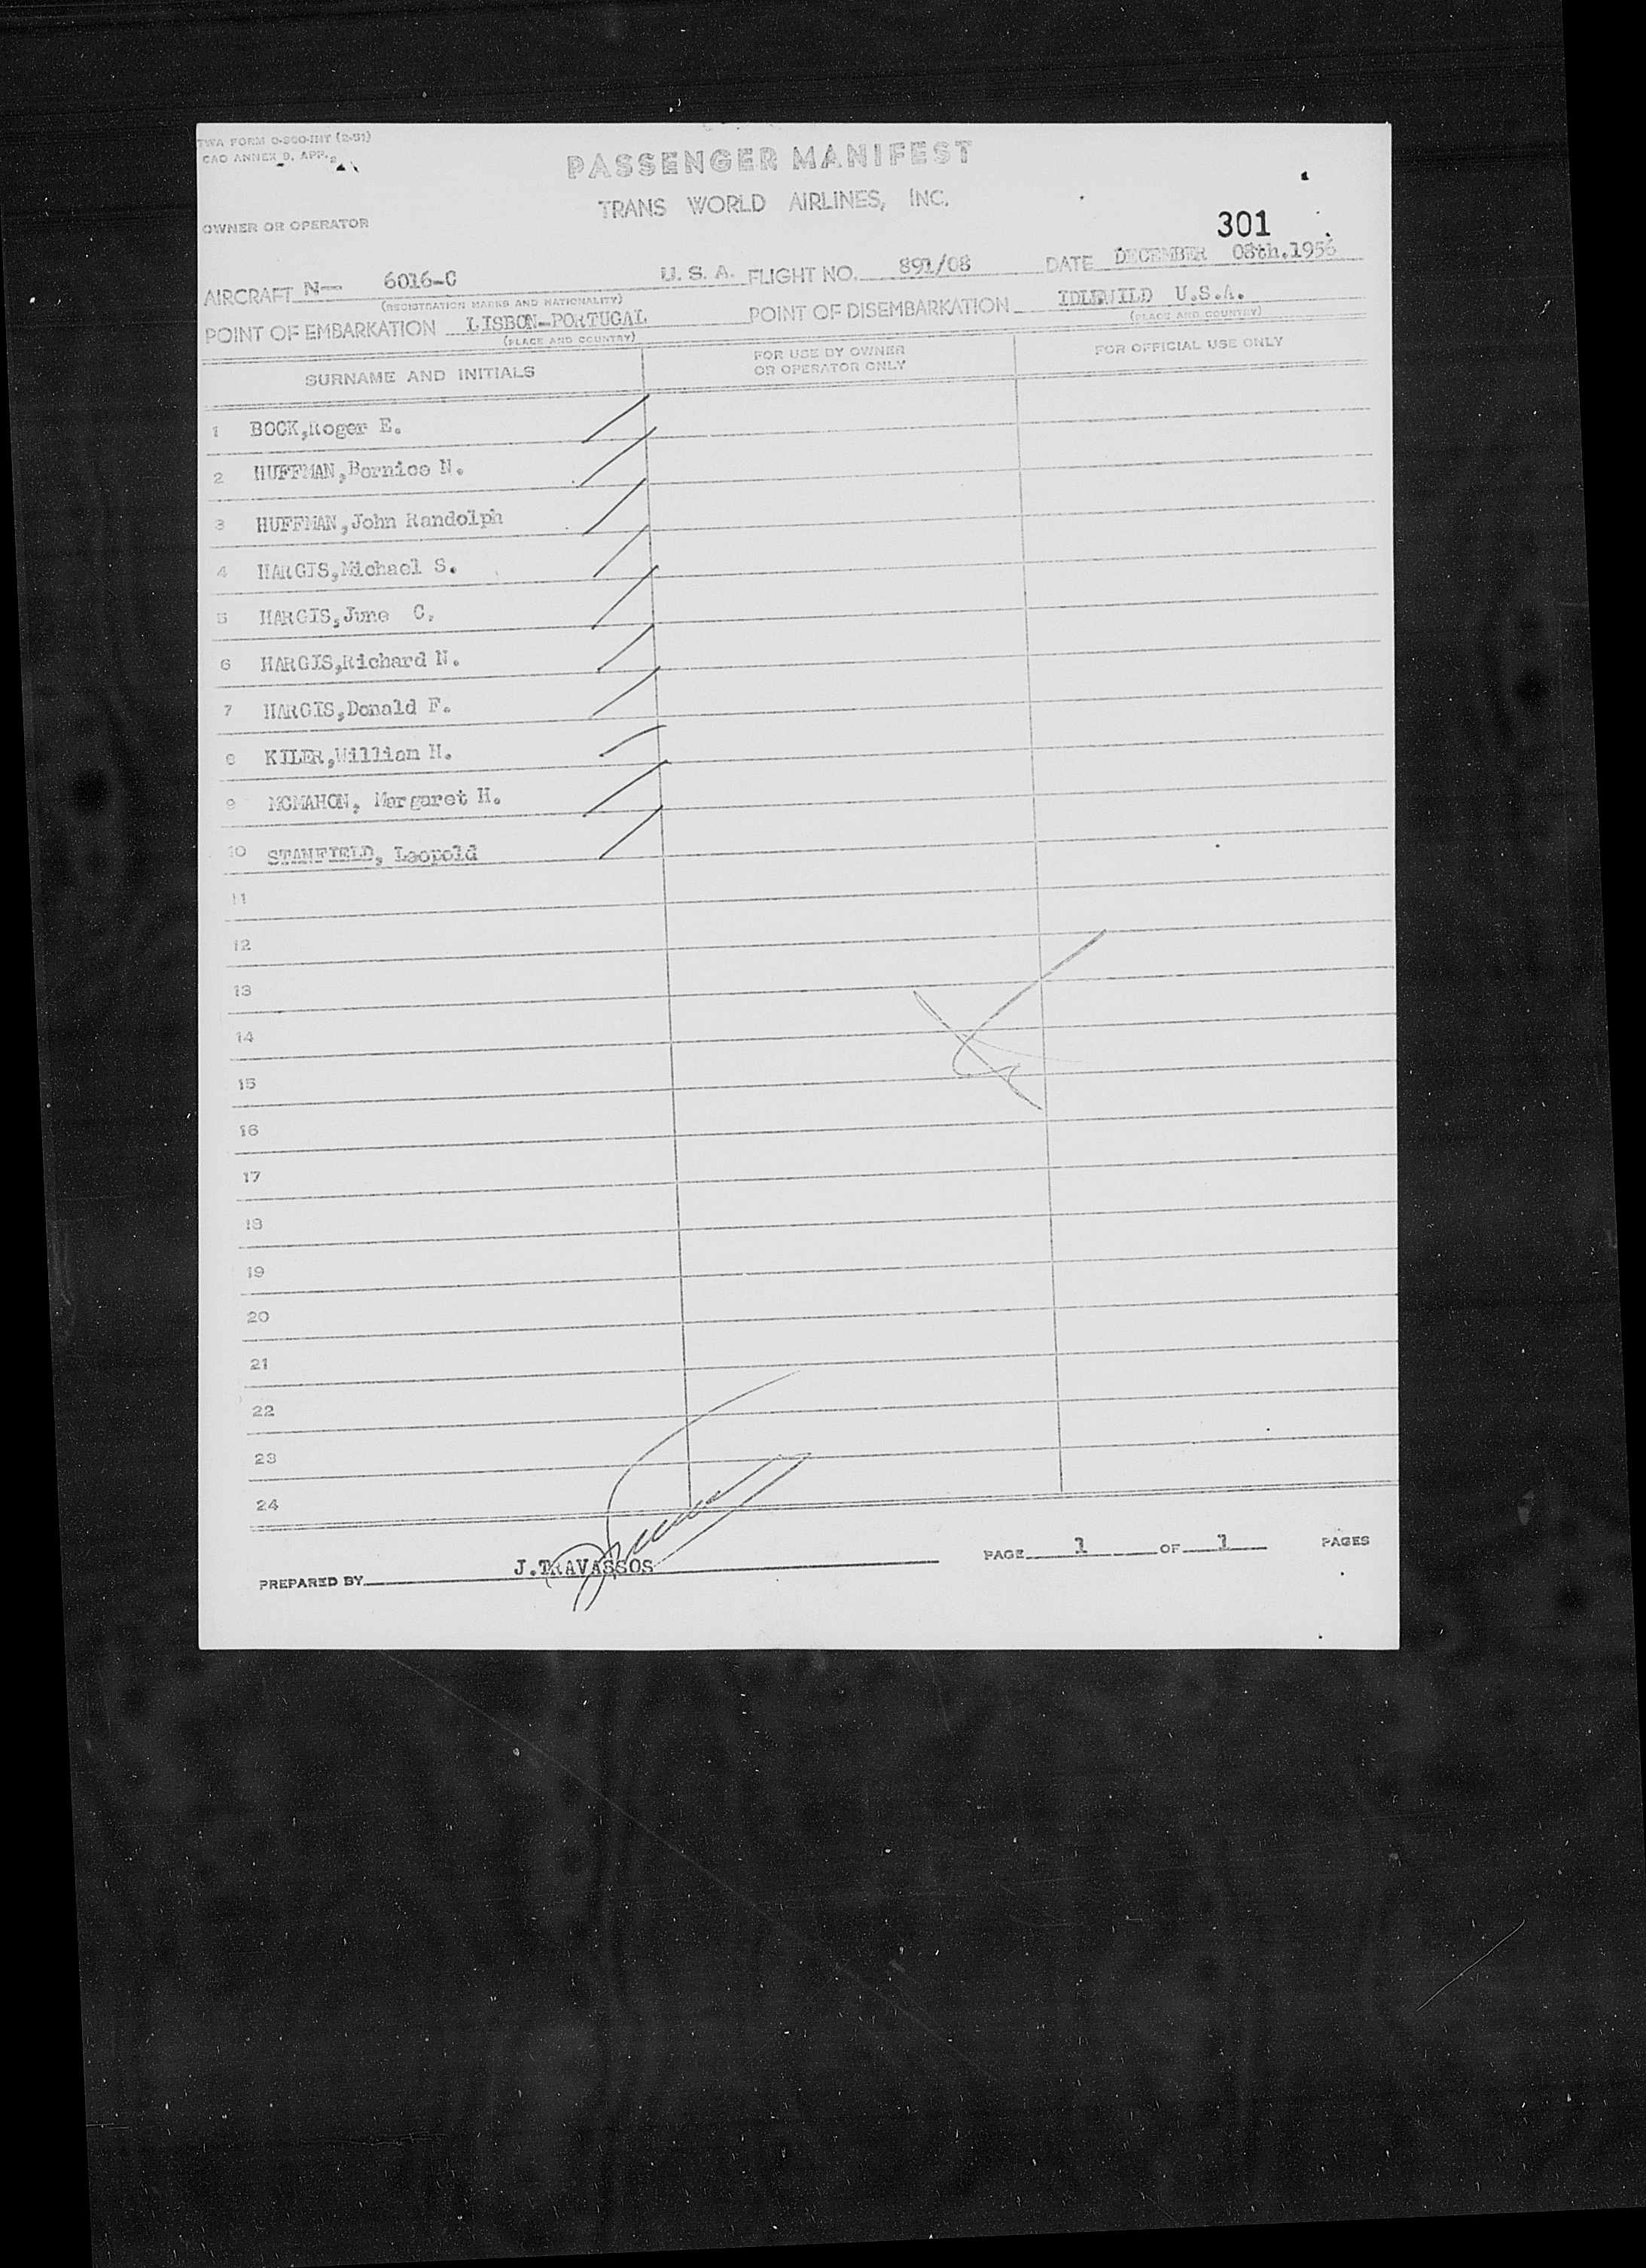 TWA FORM O-300-INT (2-51)
CAO ANNEX 9, APP. 2
PASSENGER MANIFEST
TRANS WORLD AIRLINES, INC.
OWNER OR OPERATOR
301
AIRCRAFT N— 6016-C U. S. A. FLIGHT NO. 891/08 DATE DECEMBER 08th.1956
(REGISTRATION MARKS AND NATIONALITY)
POINT OF EMBARKATION LISBON-PORTUGAL POINT OF DISEMBARKATION IDLEWILD U.S.A.
(PLACE AND COUNTRY) (PLACE AND COUNTRY)
SURNAME AND INITIALS FOR USE BY OWNER OR OPERATOR ONLY FOR OFFICIAL USE ONLY
1 BOCK,Roger E.
2 HUFFMAN,Bernice N.
3 HUFFMAN,John Randolph
4 HARGIS,Michael S.
5 HARGIS,June C.
6 HARGIS,Richard N.
7 HARGIS,Donald F.
8 KILER,William H.
9 MCMAHON, Margaret H.
10 STANFIELD, Leopold
11
12
13
14
15
16
17
18
19
20
21
22
23
24
PREPARED BY J.TRAVASSOS PAGE 1 OF 1 PAGES